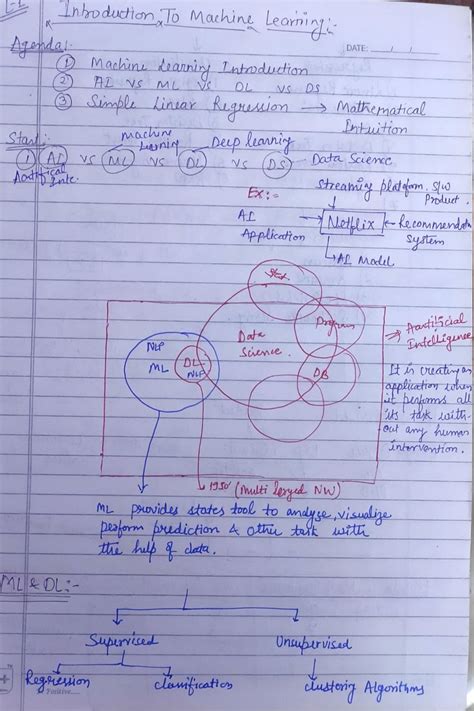 L-1
Introduction To Machine Learning:-
Agenda:-
DATE: / /
① Machine Learning Introduction
② AI VS ML VS DL VS DS
③ Simple Linear Regression → Mathematical
Intuition
Start:-
machine
learning
Deep learning
① AI VS ML VS DL VS DS - Data Science
Aartifical
Inte.
Streaming platform. S/W
Product.
Ex:-
AI
Application
Netflix
Recommendation
System
AI Model
Program
Data
Science.
NLP
ML
DL
NLP
DB
⇒ Aartificial
Intelligence
It is creating an
application when
it performs all
its task with-
out any human
intervention.
1950 (Multi layed NW)
ML provides states tool to analyze, visualize
perform prediction & other task with
the help of data.
ML & DL:-
Supervised Unsupervised
Regression classification clustering Algorithms
Positive